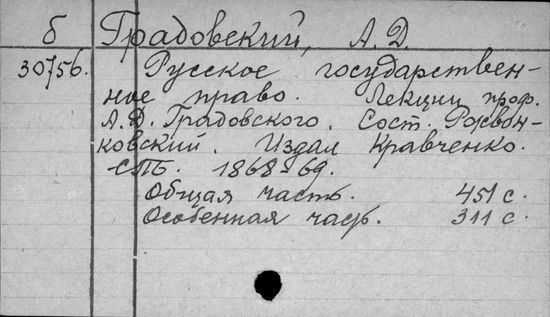 б Градовский, А. Д.
30756. Русское государствен-
ное право. Лекции проф.
А. Д. Градовского. Сост. Рожвон-
ковский. Издал Кравченко.
СПБ. 1868-69.
Общая часть. 451 с.
Особенная част. 311 с.